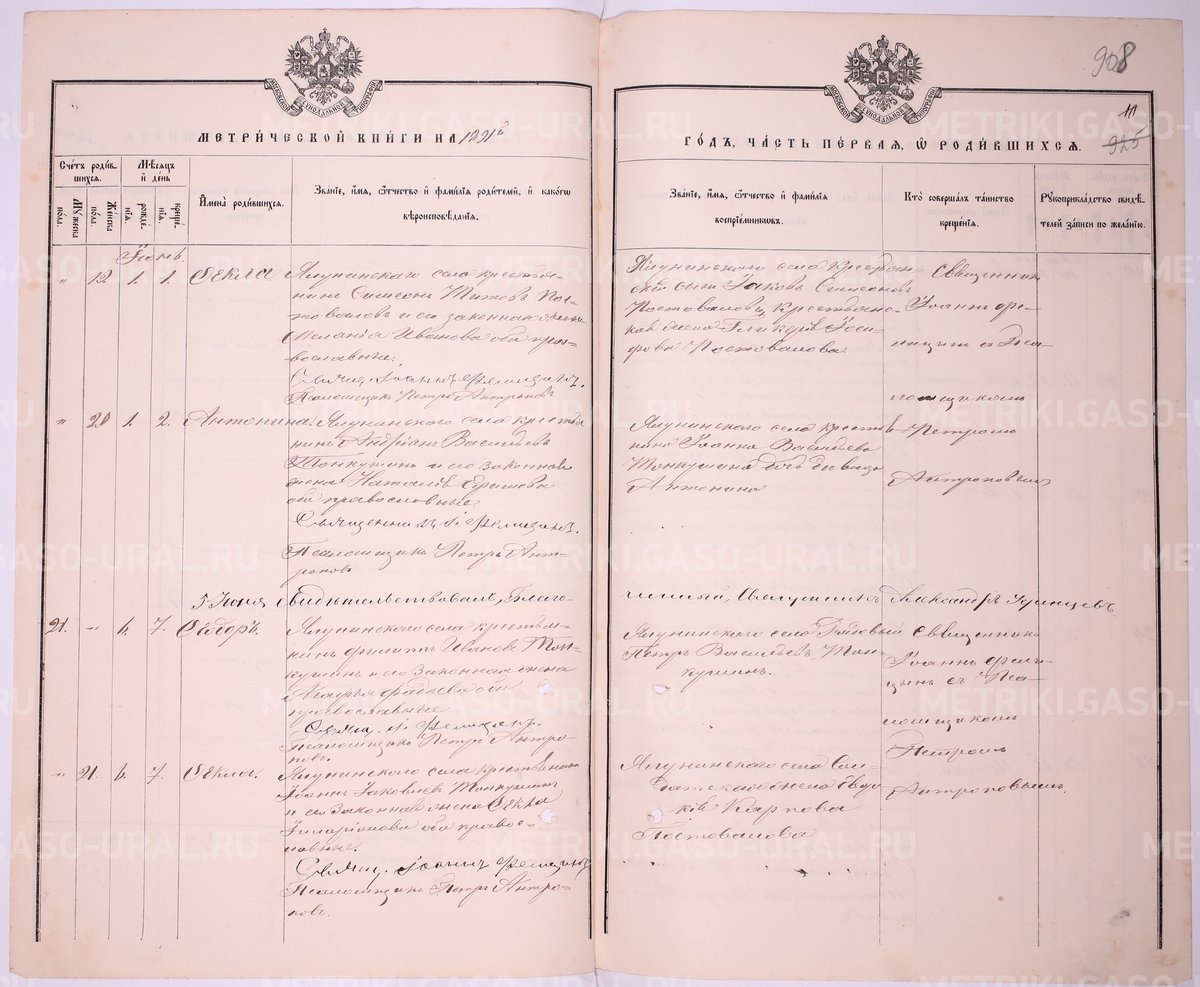 908
МОСКОВСКОЙ СѴНОДАЛЬНОЙ ТИПОГРАФІИ
МОСКОВСКОЙ СѴНОДАЛЬНОЙ ТИПОГРАФІИ
МЕТРИ́ЧЕСКОЙ КНИ́ГИ НА 1891й
ГО́ДЪ, ЧА́СТЬ ПЕ́РВАЯ, Ѡ РОДИ́ВШИХСЯ.
925
Счётъ роди́вшихся.
Мѣ́сяцъ и҆ де́нь
Му́жеска по́ла.
Же́нска по́ла.
рожде́нїя.
креще́нїя.
И҆мена̀ роди́вшихся.
Зва́нїе, и҆́мя, ѻ҆́тчество и҆ фами́лїя роди́телей, и҆ како́гѡ
вѣроисповѣ́данїя.
Зва́нїе, и҆́мя, ѻ҆́тчество и҆ фами́лїя
воспрїе́мникѡвъ.
Кто̀ соверша́лъ та́инство
креще́нїя.
Рꙋкоприкла́дство свидѣ́телей за́писи по жела́нїю.
Іюнь.
" 19. 1. 1. Ѳекла
Ялунинскаго села крестья-
нинъ Симеонъ Титовъ Пос-
товаловъ и его законная жена
Меланія Иванова оба пра-
вославные.
Свящ. Іоаннъ Фелицинъ.
Псаломщикъ Петръ Антроповъ
Ялунинскаго села крестьян-
скій сынъ Іаковъ Симеоновъ
Постоваловъ, крестьянс-
кая жена Гликерія Іоси-
фова Постовалова.
Священникъ
Іоаннъ Фе-
лицинъ съ Пса-
ломщикомъ
Петромъ
Антроповымъ
" 20 1. 2. Антонина
Ялунинскаго села крестья
нинъ Андріанъ Васильевъ
Тонкушинъ и его законная
жена Наталія Ефимова
оба православные.
Священникъ І. Фелицинъ.
Псаломщикъ Петръ Антроповъ
Ялунинскаго села крестья
нина Іоанна Васильева
Тонкушина дочь дѣвица
Антонина
5 Іюня свидѣтельствовалъ, Благо-
чинный, Священникъ Александръ
21. " 6. 7. Сидоръ.
Ялунинскаго села крестья-
нинъ Филиппъ Ивановъ Тон-
кушинъ и его законная жена
оба
православные
Свящ. І. Фелицинъ.
Псаломщикъ Петръ Антро-
повъ.
Ялунинскаго села Рядовый
Петръ Васильевъ Тон-
кушинъ.
Священникъ
Іоаннъ Фели-
цынъ съ Пса-
ломщикомъ
Петромъ
Антроповымъ.
" 21. 6. 7. Ѳекла.
Ялунинскаго села крестьянинъ
Іоаннъ Іаковлевъ Тонкушинъ
и его законная жена Ѳекла
Иларіонова оба правос-
лавные.
Свящ. Іоаннъ Фелицинъ
Псаломщикъ Петръ Антро-
повъ.
Ялунинскаго села Сол-
датская жена Евдо-
кія Карпова
Постовалова
METRIKI.GASO-URAL.RU